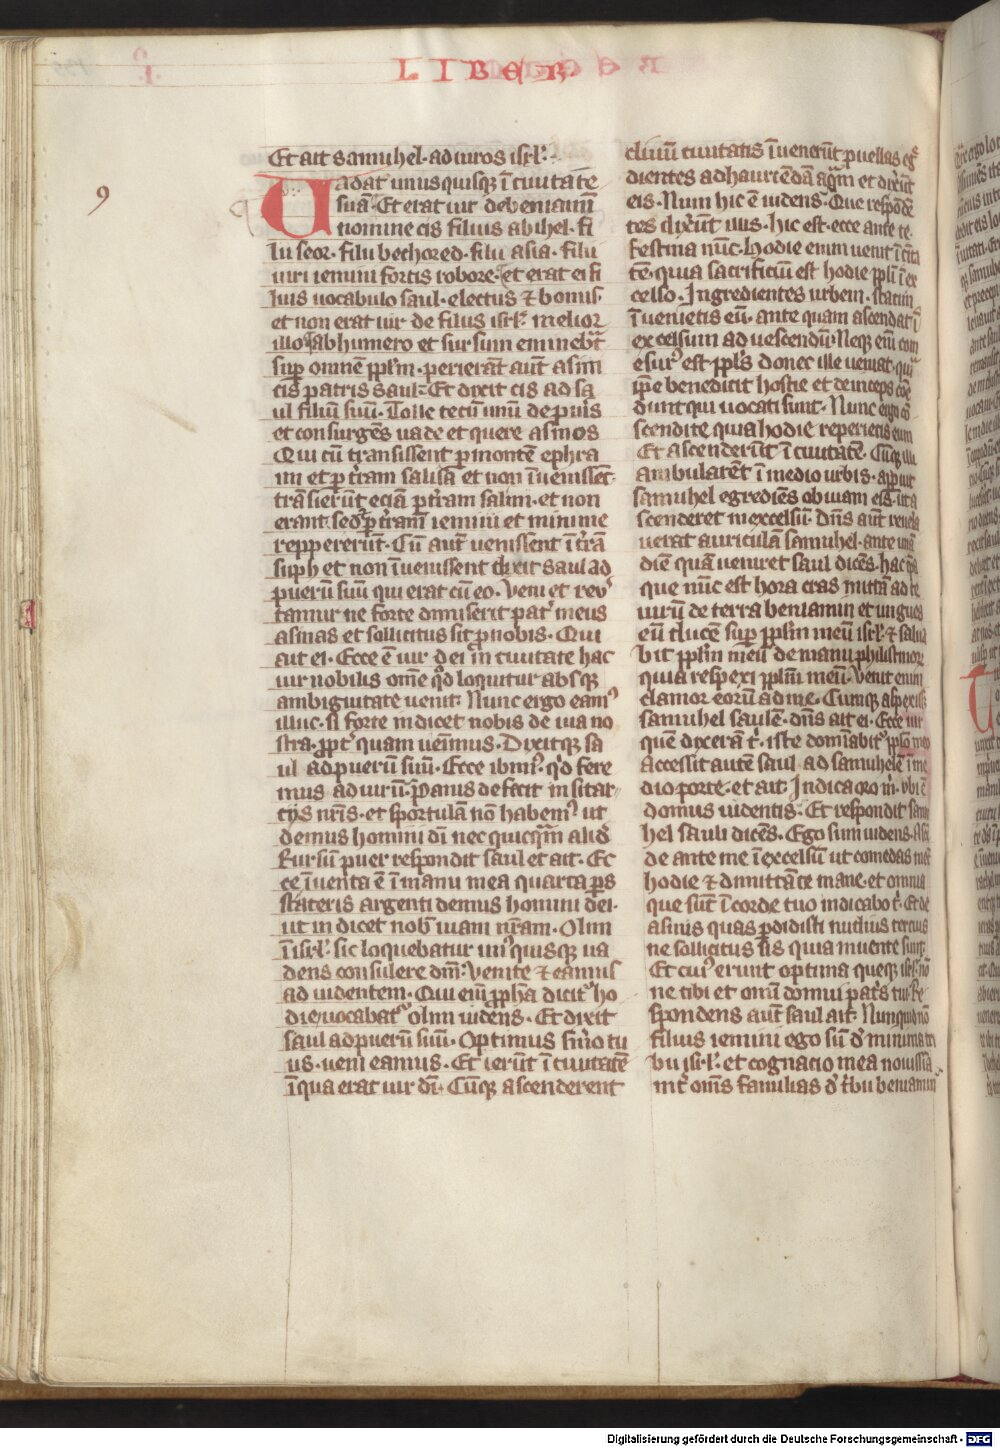 LIBER
9
Et ait samuhel· ad uiros isrl̃·
Uadat unusquisqꝫ ī ciuitatē
suā· Et erat uir de beniamī
nomine cis filius abihel· fi
lii seor· filii bechored· filii asia· filii
uiri iemini fortis robore· et erat ei fi
lius uocabulo saul· electus ⁊ bonus·
et non erat uir de filiis isrl̃· melior
illo· ab humero et sursum eminebat
sup̄ omnē pp̄lm· perierāt aūt asini
cis patris saul· Et dixit cis ad sa
ul filiū suū· Tolle tecū unū de pueris
et consurgēs uade et quere asinos
Qui cū transissent p̱ montē ephra
im et p̱ t̄ram salisa et non īuenissēt·
trāsierūt eciā p̱ t̄ram salim· et non
erant· sed ⁊ p̱ t̄ram iemini et minime
reppererūt· Cū aūt uenissent ī t̄rā
suph et non īuenissent dixit saul ad
puerū suū qui erat cū eo· Veni et reuꝰ
tamur ne forte dimiserit pat̄ meus
asinas et sollicitus sit p̱ nobis· Qui
ait ei· Ecce ē uir dei in ciuitate hac
uir nobilis om̄e qd̄ loquitur absqꝫ
ambiguitate uenit· Nunc ergo eamꝰ
illuc· si forte indicet nobis de uia no
stra· ppt̄ quam uenimus· Dixitqꝫ sa
ul ad puerū suū· Ecce ibimꝰ· qd̄ fere
mus ad uirū· panis defecit in sitar
cijs nr̄is· et sportulā nō habemꝰ ut
demus homini dī nec quicq̄m aliud
Rursū puer respondit saul et ait· Ec
ce īuenta ē ī manu mea quarta pars
stateris argenti demus homini dei·
ut indicet nob̄ uiam nr̄am· Olim
ī isrl̃· sic loquebatur unꝰquisqꝫ ua
dens consulere dm̄· Venite ⁊ eamus
ad uidentem· Qui eni pp̄ha dicitꝰ ho
die uocabatꝰ olim uidens· Et dixit
saul ad puerū suū· Optimus sermo tu
us· ueni eamus· Et ierūt ī ciuitatē
ī qua erat uir dī· Cūqꝫ ascenderent
cliuū ciuitatis īuenerūt puellas eḡ
dientes ad hauriēdā aquam et dixerūt
eis· Num hic ē uidens· Que respondē
tes dixerūt illis· hic est· ecce ante te·
festina nūc· hodie enim uenit ī ciui
tatē· quia sacrificiū est hodie ppli ī ex
celso· Ingredientes urbem· statim
īuenietis eū· ante quam ascendat ī
excelsum ad uescendū· Neqꝫ eni com
esurꝰ est ppl̄s donec ille ueniat· quia
ip̄e benedicit hostie et deinceps come
dunt qui uocati sunt· Nunc ergo cō
scendite quia hodie reperietis eum
Et ascenderūt ī ciuitatē· Cūqꝫ illi
ambularēt ī medio urbis· apparuit
samuhel egrediēs obuiam eis· ut a
scenderet in excelsū· Dn̄s aūt reuela
uerat auriculā samuhel· ante unā
diē quā ueniret saul dicēs· hac ip̄a
que nūc est hora cras mittā ad te
uirū de terra beniamin et ungues
eū ducē sup̄ pp̄lm meū isrl̃· ⁊ salua
bit pp̄lm meū de manu philistinorū
quia respexi pp̄lm meū· Venit enim
clamor eorū ad me· Cumqꝫ aspexisset
samuhel saulē· dn̄s ait ei· Ecce uir
quē dixerā t̄· iste domīabitꝰ pplo meo
Accessit autē saul ad samuhelē ī me
dio porte· et ait· Indica oro m̄· ubi ē
domus uidentis· Et respondit samu
hel sauli dicēs· Ego sum uidens· Ascē
de ante me ī excelsū ut comedas mecū
hodie ⁊ dimittā te mane· et omnia
que sūt ī corde tuo indicabo t̄· Et de
asinis quas p̱didisti nudius tercius
ne sollicitus sis quia inuente sunt·
Et cuiꝰ erunt optima queqꝫ isrl̃· nō
ne tibi et omī domui patris tui· Re
spondens aūt saul ait· Nunquid nō
filius iemini ego sū d̄ minima tri
bu isrl̃· et cognacio mea nouissīa
int̄ omēs familias d̄ t̄bu beniamin·
Digitalisierung gefördert durch die Deutsche Forschungsgemeinschaft - DFG